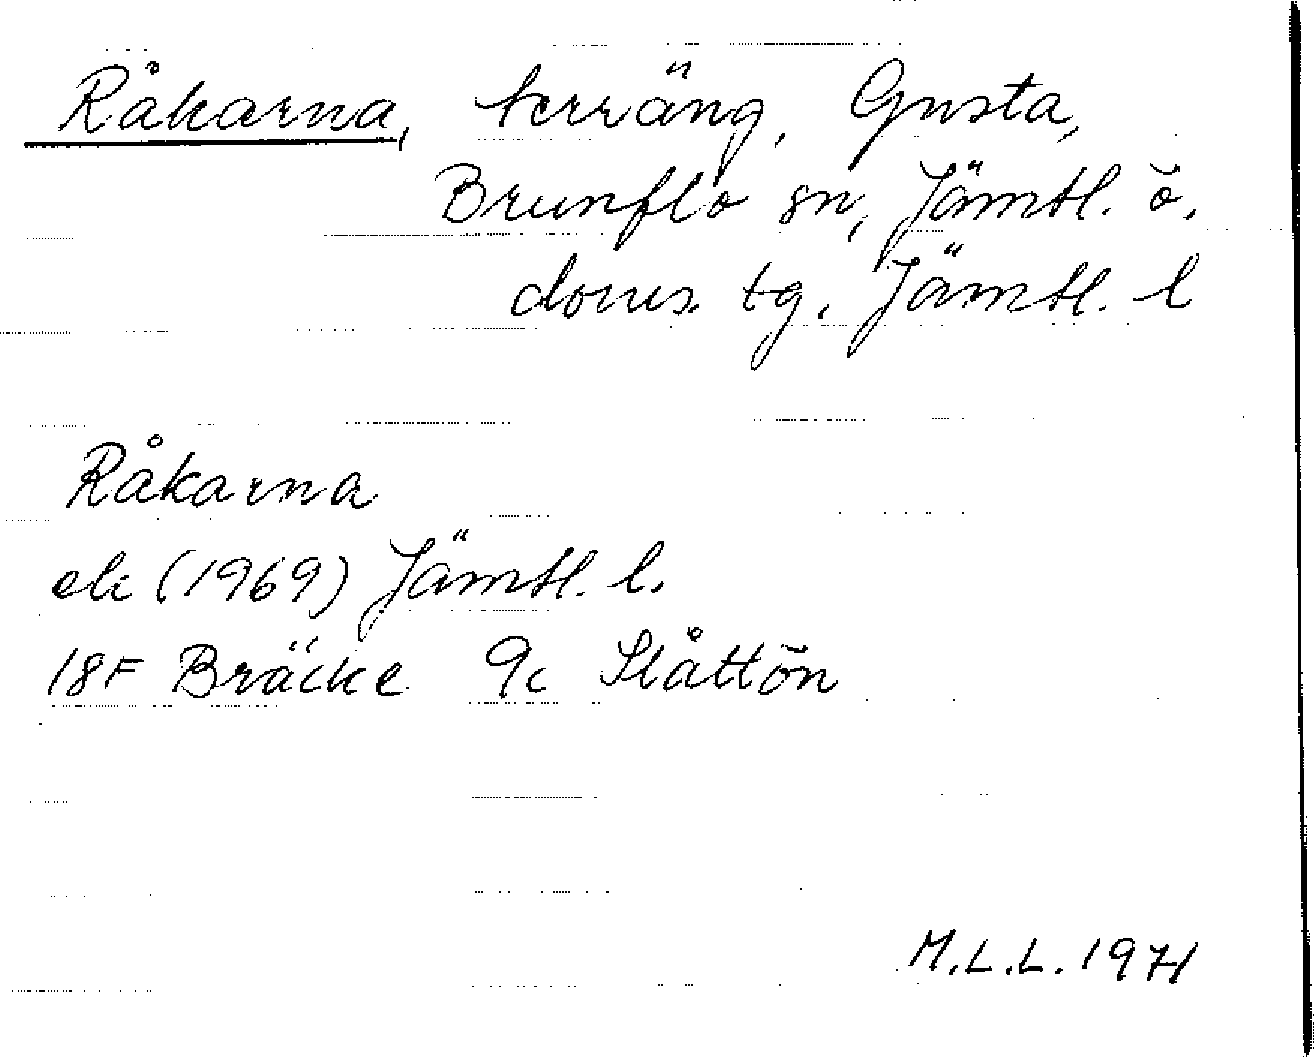 Råkarna, terräng, Gusta,
Brunflo sn, Jämtl. ö.
doms. tg. Jämtl. l
Råkarna
ek (1969) Jämtl. l.
18F Bräcke 9c Slåttön
M.L.L. 1971